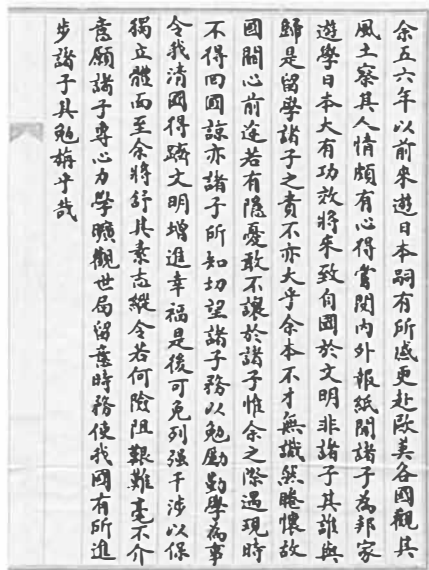 余五六年以前來遊日本嗣有所感更赴歐美各國觀其
風土察其人情頗有心得嘗閱内外報紙聞諸子為邦家
遊學日本大有功效將來致自國於文明非諸子其誰與
歸是留學諸子之責不亦大乎余本不才無識然睠懷故
國關心前途若有隱憂敢不讓於諸子惟余之際遇現時
不得回國諒亦諸子所知切望諸子務以勉勵勤學為事
令我清國得躋文明增進幸福是後可免列强干涉以保
獨立體面至余將舒其素志縱令若何險阻艱難毫不介
意願諸子專心力學曠觀世局留意時務使我國有所進
步諸子其勉旃乎哉